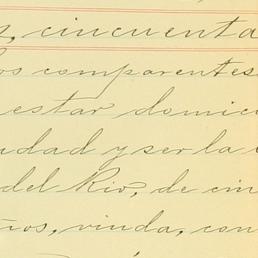 , cincuenta
los comparentes
estar domici
udad y ser la
del Rio, de cin
ños, viuda, con